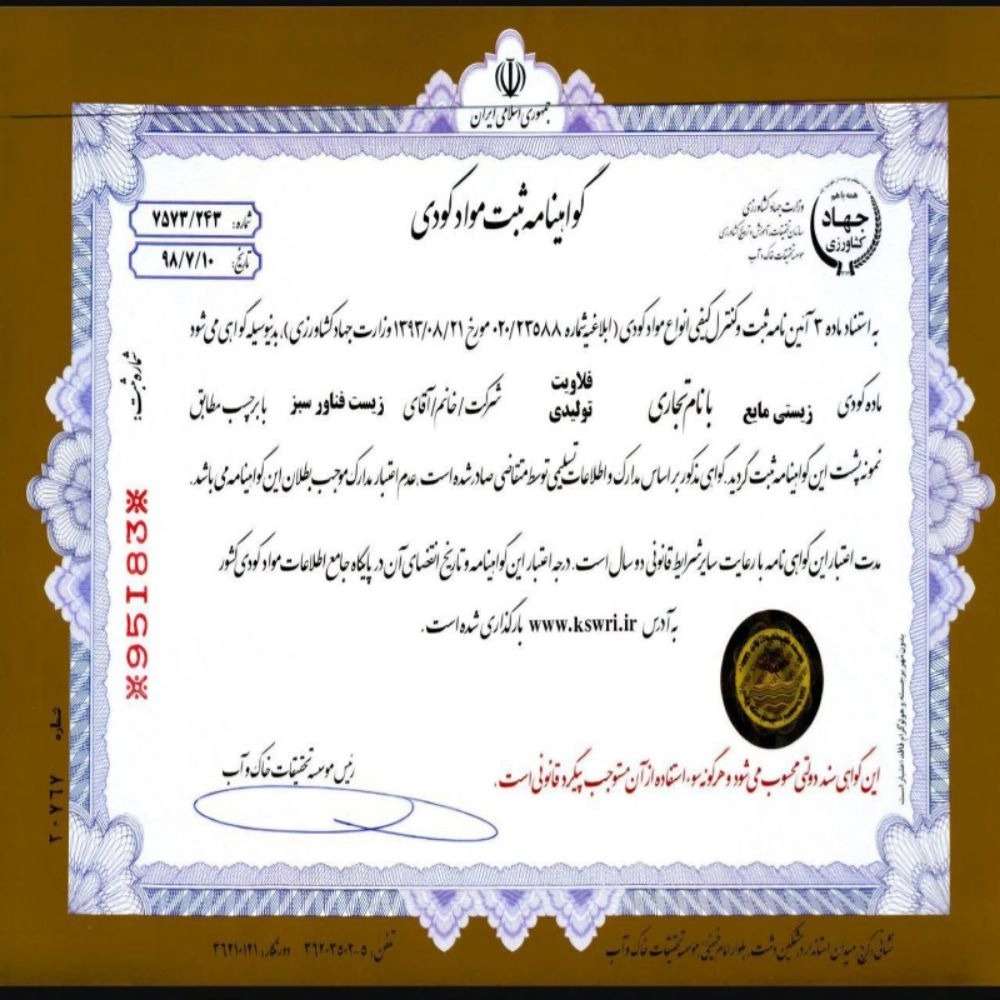 جمهوری اسلامی ایران
همه با هم
جهاد
کشاورزی
وزارت جهاد کشاورزی
سازمان تحقیقات، آموزش و ترویج کشاورزی
موسسه تحقیقات خاک و آب
گواهینامه ثبت مواد کودی
شماره: ۷۵۷۳/۲۴۳
تاریخ: ۹۸/۷/۱۰
به استناد ماده ۳ آئین نامه ثبت و کنترل کیفی انواع مواد کودی (ابلاغیه شماره ۰۲۰/۲۳۵۸۸ مورخ ۱۳۹۳/۰۸/۲۱ وزارت جهاد کشاورزی)، بدینوسیله گواهی می شود
ماده کودی زیستی مایع با نام تجاری فلاویت تولیدی شرکت/خانم/آقای زیست فناور سبز با برچسب مطابق
نمونه پشت این گواهینامه ثبت گردید. گواهی مذکور بر اساس مدارک و اطلاعات تسلیمی توسط متقاضی صادر شده است. عدم اعتبار مدارک موجب بطلان این گواهینامه می باشد.
مدت اعتبار این گواهی نامه با رعایت سایر شرایط قانونی دو سال است. درجه اعتبار این گواهینامه و تاریخ انقضای آن در پایگاه جامع اطلاعات مواد کودی کشور
به آدرس www.kswri.ir بارگذاری شده است.
شماره ثبت:
※95183※
رئیس موسسه تحقیقات خاک و آب
این گواهی سند دولتی محسوب می شود و هرگونه سوء استفاده از آن مستوجب پیگرد قانونی است.
بدون مهر برجسته و هولوگرام فاقد اعتبار است
شماره ۲۰۷۶۷
نشانی: کرج، میدان استاندارد، مشکین دشت، بلوار امام خمینی، موسسه تحقیقات خاک و آب
تلفن: ۵-۳۶۲۰۳۵۰۲ دورنگار: ۳۶۲۱۰۱۲۱